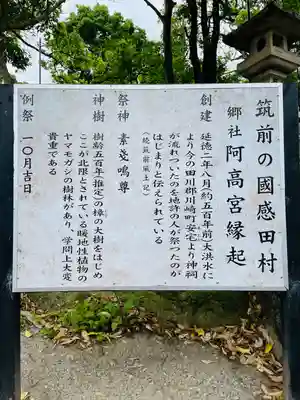 筑前の國感田村
郷社 阿高宮縁起
創建 延徳二年八月(約五百年前)大洪水に
より今の田川郡川崎町安宅より神祠
が流れついたのを地許の人が祭つたのが
はじまりと伝えられている
(続筑前風土記)
祭神 素戔鳴尊
神樹 樹齢五百年(推定)の樟の大樹をはじめ
ここが北限とされている暖地性植物の
ヤマモガシの樹林があり、学問上大変
貴重である
例祭 一〇月吉日